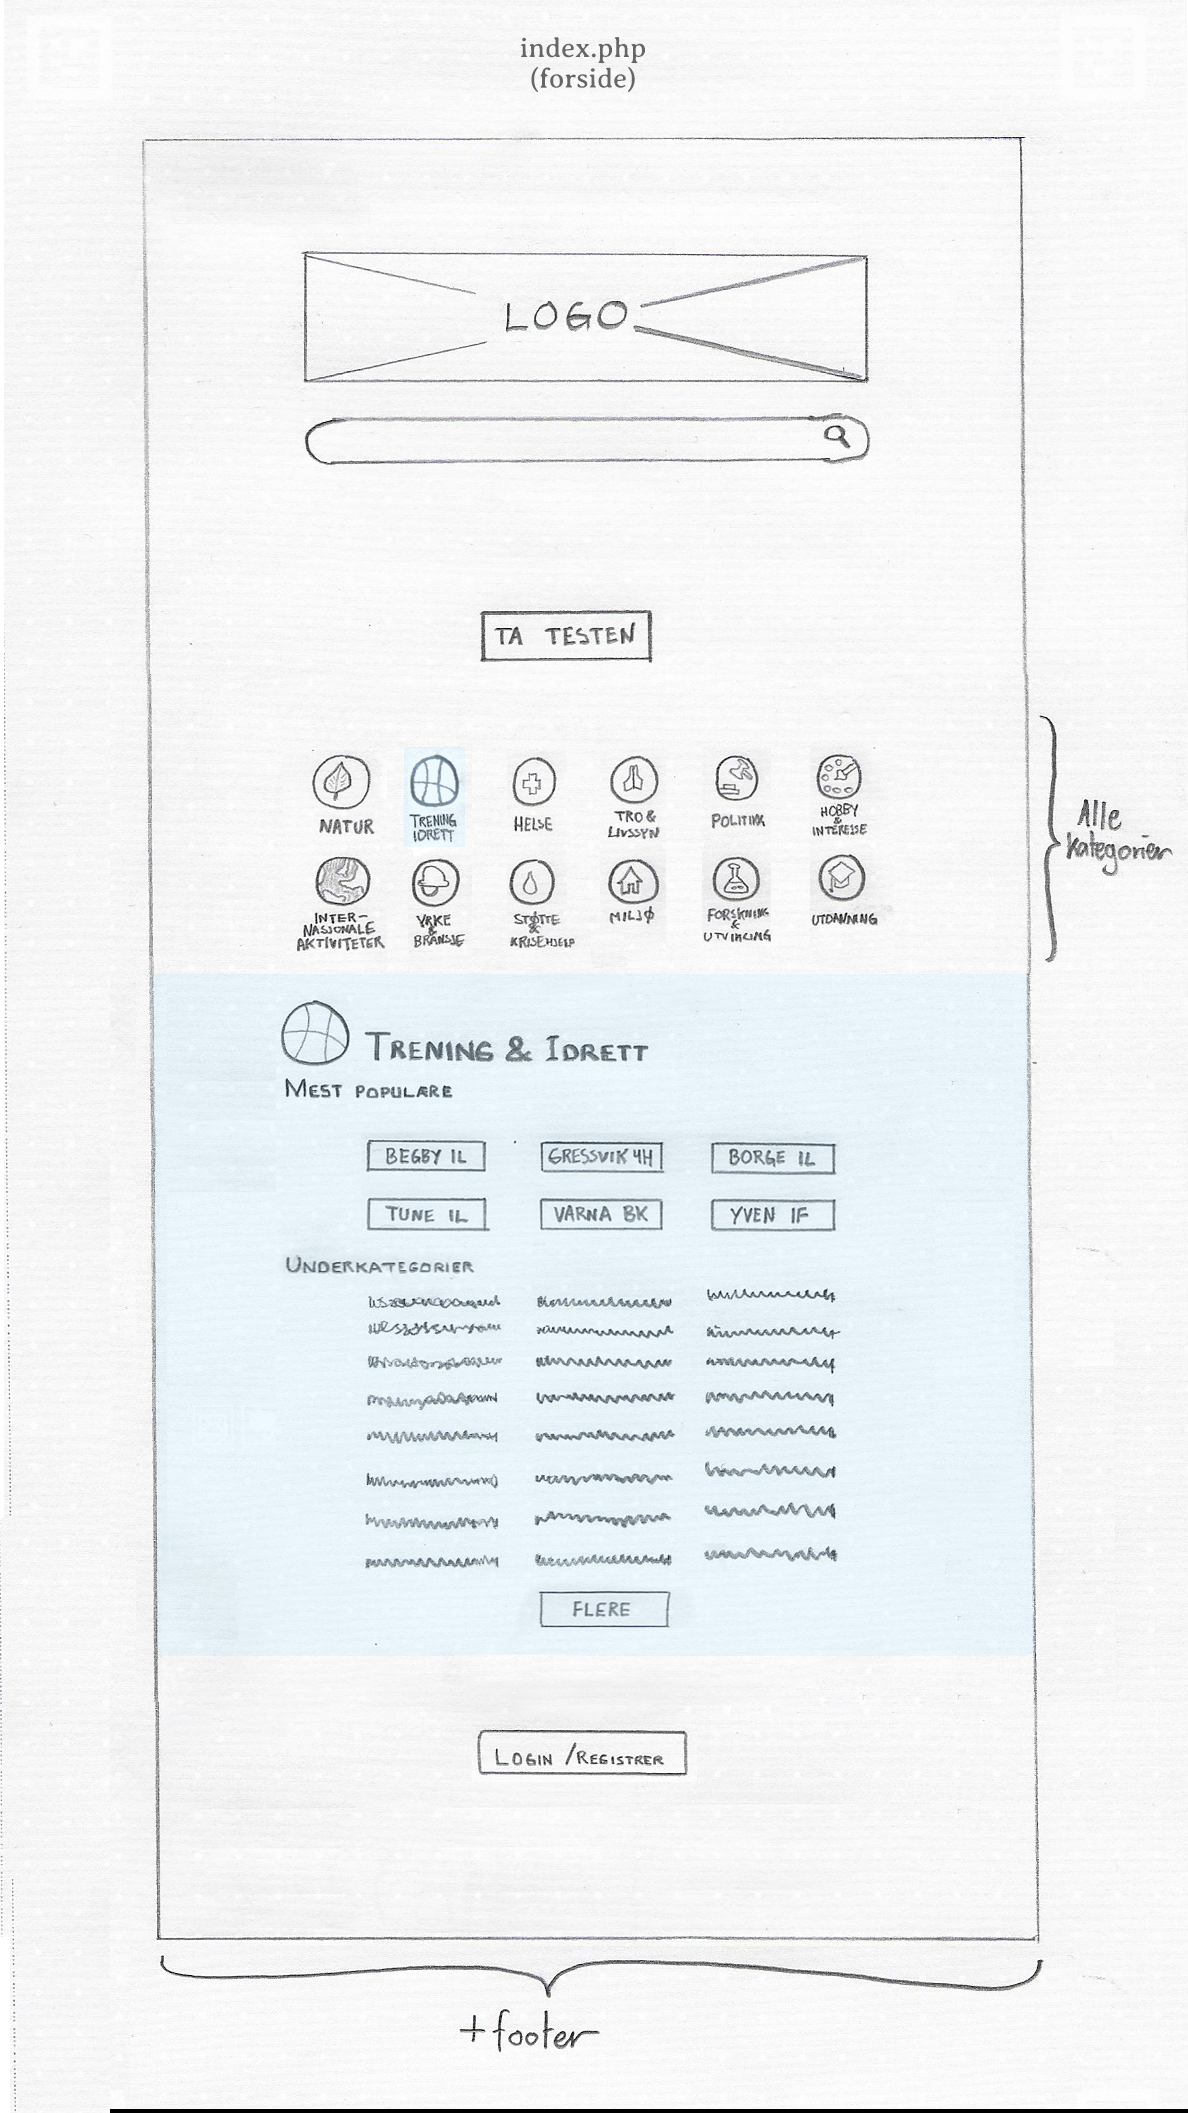 index.php
(forside)
LOGO
TA TESTEN
NATUR
TRENING
IDRETT
HELSE
TRO &
LIVSSYN
POLITIKK
HOBBY
&
INTERESSE
INTER-
NASJONALE
AKTIVITETER
YRKE
&
BRANSJE
STØTTE
&
KRISEHJELP
MILJØ
FORSKNING
&
UTVIKLING
UTDANNING
Alle
kategorier
TRENING & IDRETT
MEST POPULÆRE
BEGBY IL
GRESSVIK 4H
BORGE IL
TUNE IL
VARNA BK
YVEN IF
UNDERKATEGORIER
FLERE
LOGIN /REGISTRER
+footer